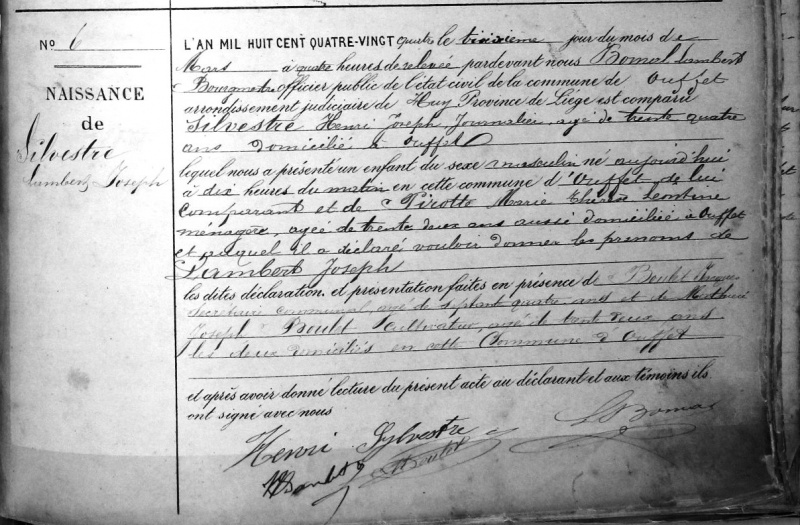 No 6
NAISSANCE
de
Silvestre
Lambert Joseph
L'AN MIL HUIT CENT QUATRE-VINGT quatre le jour du mois de
Mars à quatre heures de relevée pardevant nous Bomal Lambert
Bourgmestre officier public de l'état civil de la commune de Ouffet
arrondissement judiciaire de Huy Province de Liége est comparu
Silvestre Henri Joseph Journalier, agé de trente quatre
ans domicilié à Ouffet
lequel nous a présenté un enfant du sexe masculin né aujourd'hui
à dix heures du matin en cette commune d'Ouffet de lui
comparant et de Pirotte Marie Thérèse Leontine
ménagère, agée de trente deux ans aussi domiciliée à Ouffet
et auquel il a déclaré vouloir donner les prenoms de
Lambert Joseph
les dites déclaration et présentation faites en présence de Boulet
Secrétaire communal, agé de septant quatre ans et de
Joseph Boulet Cultivateur, agé de deux ans
les deux domiciliés en cette Commune d'Ouffet
et après avoir donné lecture du présent acte au déclarant et aux témoins ils
ont signé avec nous
Henri Sylvestre
L Bomal
Boulet